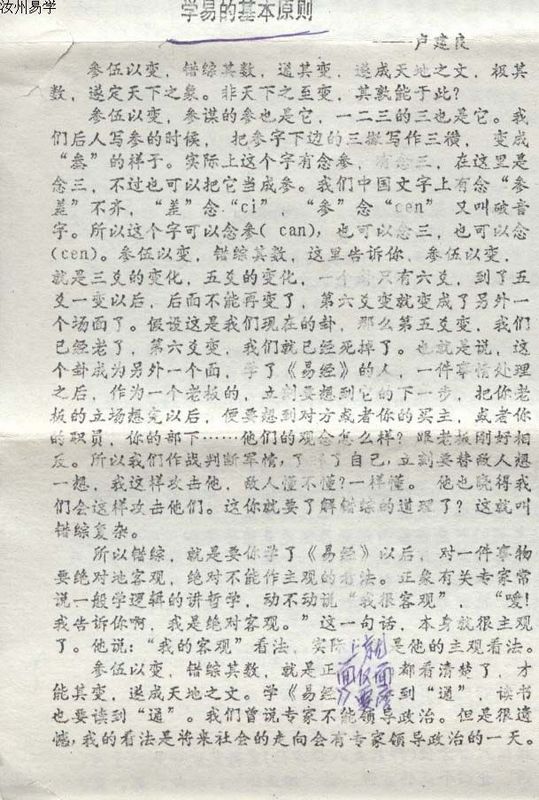 汝州易学
学易的基本原则
——卢建良
参伍以变，错综其数，通其变，遂成天地之文，极其
数，遂定天下之象。非天下之至变，其孰能于此？
参伍以变，参谋的参也是它，一二三的三也是它。我
们后人写参的时候， 把参字下边的三撇写作三横， 变成
“叁”的样子。实际上这个字有念参，有念三，在这里是
念三，不过也可以把它当成参。我们中国文字上有念“参
差”不齐，“差”念“ci”，“参”念“cen” 又叫破音
字。所以这个字可以念参( can)，也可以念三，也可以念
(cen)。参伍以变，错综其数，这里告诉你，参伍以变，
就是三爻的变化，五爻的变化，一个卦只有六爻，到了五
爻一变以后，后面不能再变了，第六爻变就变成了另外一
个场面了。假设这是我们现在的卦，那么第五爻变，我们
已经老了，第六爻变，我们就已经死掉了。也就是说，这
个卦成为另外一个面，学了《易经》的人，一件事情处理
之后，作为一个老板的，立刻要想到它的下一步，把你老
板的立场想完以后，便要想到对方或者你的买主，或者你
的职员，你的部下……他们的观念怎么样？跟老板刚好相
反。所以我们作战判断军情，了解了自己，立刻要替敌人想
一想，我这样攻击他，敌人懂不懂？一样懂。 他也晓得我
们会这样攻击他们。这你就要了解错综的道理了？这就叫
错综复杂。
所以错综，就是要你学了《易经》以后，对一件事物
要绝对地客观，绝对不能作主观的看法。正象有关专家常
说一般学逻辑的讲哲学，动不动说“我很客观”，“嗳！
我告诉你啊，我是绝对客观。”这一句话，本身就很主观
了。他说：“我的客观”看法，实际上就是他的主观看法。
参伍以变，错综其数，就是正面反面都看清楚了，才
能其变，遂成天地之文。学《易经》要学到“通”，读书
也要读到“通”。我们曾说专家不能领导政治。但是很遗
憾，我的看法是将来社会的走向会有专家领导政治的一天。